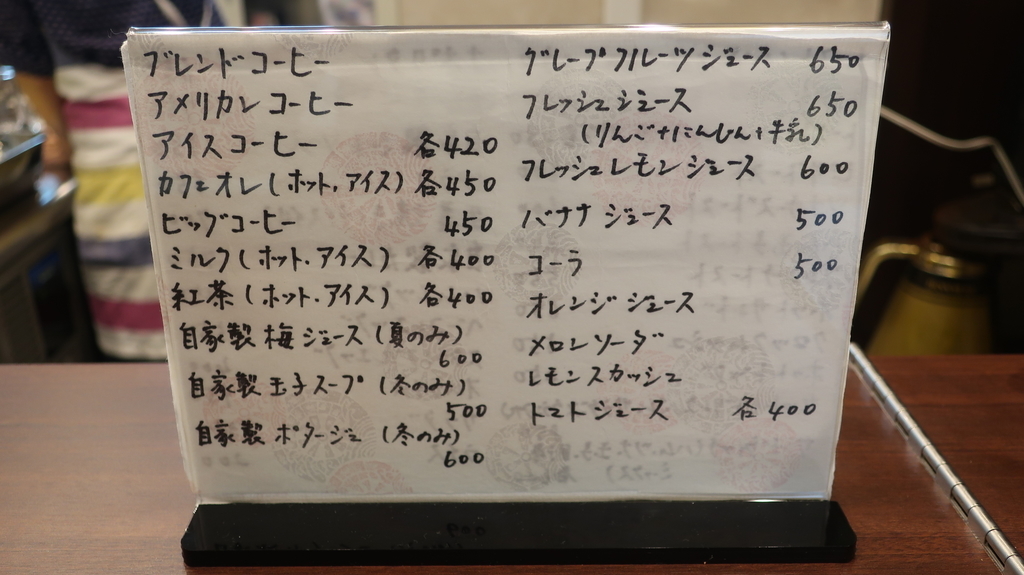 ブレンドコーヒー
アメリカンコーヒー
アイスコーヒー 各420
カフェオレ(ホット・アイス) 各450
ビッグコーヒー 450
ミルク(ホット・アイス) 各400
紅茶(ホット・アイス) 各400
自家製 梅ジュース(夏のみ)
600
自家製 玉子スープ(冬のみ)
500
自家製 ポタージュ(冬のみ)
600
グレープフルーツジュース 650
フレッシュジュース 650
(りんご+にんじん+牛乳)
フレッシュレモンジュース 600
バナナジュース 500
コーラ 500
オレンジジュース
メロンソーダ
レモンスカッシュ
トマトジュース 各400